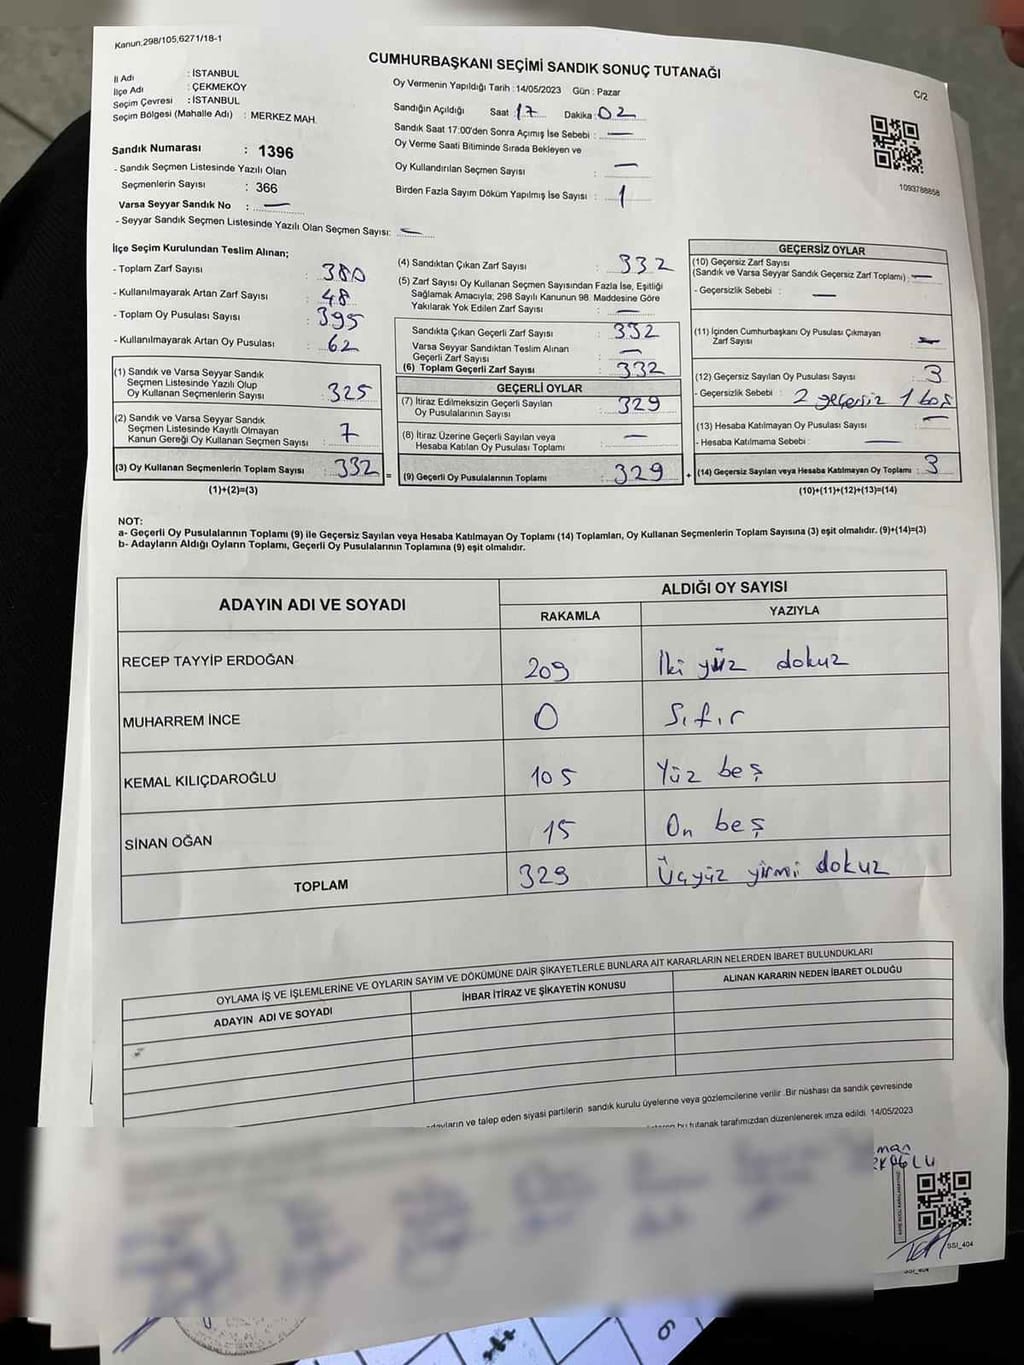 Kanun.298/105,6271/18-1
CUMHURBAŞKANI SEÇİMİ SANDIK SONUÇ TUTANAĞI
C/2
İl Adı : İSTANBUL
İlçe Adı : ÇEKMEKÖY
Seçim Çevresi : İSTANBUL
Seçim Bölgesi (Mahalle Adı) : MERKEZ MAH.
Sandık Numarası : 1396
- Sandık Seçmen Listesinde Yazılı Olan
Seçmenlerin Sayısı : 366
Varsa Seyyar Sandık No : —
- Seyyar Sandık Seçmen Listesinde Yazılı Olan Seçmen Sayısı: —
Oy Vermenin Yapıldığı Tarih : 14/05/2023 Gün : Pazar
Sandığın Açıldığı Saat : 17 Dakika : 02
Sandık Saat 17:00'den Sonra Açımış İse Sebebi : —
Oy Verme Saati Bitiminde Sırada Bekleyen ve
Oy Kullandırılan Seçmen Sayısı : —
Birden Fazla Sayım Döküm Yapılmış İse Sayısı : 1
1093788858
İlçe Seçim Kurulundan Teslim Alınan;
- Toplam Zarf Sayısı : 380
- Kullanılmayarak Artan Zarf Sayısı : 48
- Toplam Oy Pusulası Sayısı : 395
- Kullanılmayarak Artan Oy Pusulası : 62
(1) Sandık ve Varsa Seyyar Sandık
Seçmen Listesinde Yazılı Olup
Oy Kullanan Seçmenlerin Sayısı : 325
(2) Sandık ve Varsa Seyyar Sandık
Seçmen Listesinde Kayıtlı Olmayan
Kanun Gereği Oy Kullanan Seçmen Sayısı : 7
(3) Oy Kullanan Seçmenlerin Toplam Sayısı : 332
(1)+(2)=(3)
(4) Sandıktan Çıkan Zarf Sayısı : 332
(5) Zarf Sayısı Oy Kullanan Seçmen Sayısından Fazla İse, Eşitliği
Sağlamak Amacıyla; 298 Sayılı Kanunun 98. Maddesine Göre
Yakılarak Yok Edilen Zarf Sayısı : —
Sandıkta Çıkan Geçerli Zarf Sayısı : 332
Varsa Seyyar Sandıktan Teslim Alınan
Geçerli Zarf Sayısı : —
(6) Toplam Geçerli Zarf Sayısı : 332
GEÇERLİ OYLAR
(7) İtiraz Edilmeksizin Geçerli Sayılan
Oy Pusulalarının Sayısı : 329
(8) İtiraz Üzerine Geçerli Sayılan veya
Hesaba Katılan Oy Pusulası Toplamı : —
= (9) Geçerli Oy Pusulalarının Toplamı : 329 +
GEÇERSİZ OYLAR
(10) Geçersiz Zarf Sayısı
(Sandık ve Varsa Seyyar Sandık Geçersiz Zarf Toplamı) : —
- Geçersizlik Sebebi : —
(11) İçinden Cumhurbaşkanı Oy Pusulası Çıkmayan
Zarf Sayısı : —
(12) Geçersiz Sayılan Oy Pusulası Sayısı : 3
- Geçersizlik Sebebi : 2 geçersiz 1 boş
(13) Hesaba Katılmayan Oy Pusulası Sayısı : —
- Hesaba Katılmama Sebebi : —
(14) Geçersiz Sayılan veya Hesaba Katılmayan Oy Toplamı : 3
(10)+(11)+(12)+(13)=(14)
NOT:
a- Geçerli Oy Pusulalarının Toplamı (9) ile Geçersiz Sayılan veya Hesaba Katılmayan Oy Toplamı (14) Toplamları, Oy Kullanan Seçmenlerin Toplam Sayısına (3) eşit olmalıdır. (9)+(14)=(3)
b- Adayların Aldığı Oyların Toplamı, Geçerli Oy Pusulalarının Toplamına (9) eşit olmalıdır.
ADAYIN ADI VE SOYADI ALDIĞI OY SAYISI
RAKAMLA YAZIYLA
RECEP TAYYİP ERDOĞAN 209 İki yüz dokuz
MUHARREM İNCE 0 Sıfır
KEMAL KILIÇDAROĞLU 105 Yüz beş
SİNAN OĞAN 15 On beş
TOPLAM 329 Üçyüz yirmi dokuz
OYLAMA İŞ VE İŞLEMLERİNE VE OYLARIN SAYIM VE DÖKÜMÜNE DAİR ŞİKAYETLERLE BUNLARA AİT KARARLARIN NELERDEN İBARET BULUNDUKLARI
ADAYIN ADI VE SOYADI İHBAR İTİRAZ VE ŞİKAYETİN KONUSU ALINAN KARARIN NEDEN İBARET OLDUĞU
ve talep eden siyasi partilerin sandık kurulu üyelerine veya gözlemcilerine verilir. Bir nüshası da sandık çevresinde
bu tutanak tarafımızdan düzenlenerek imza edildi. 14/05/2023
SSI_404
6